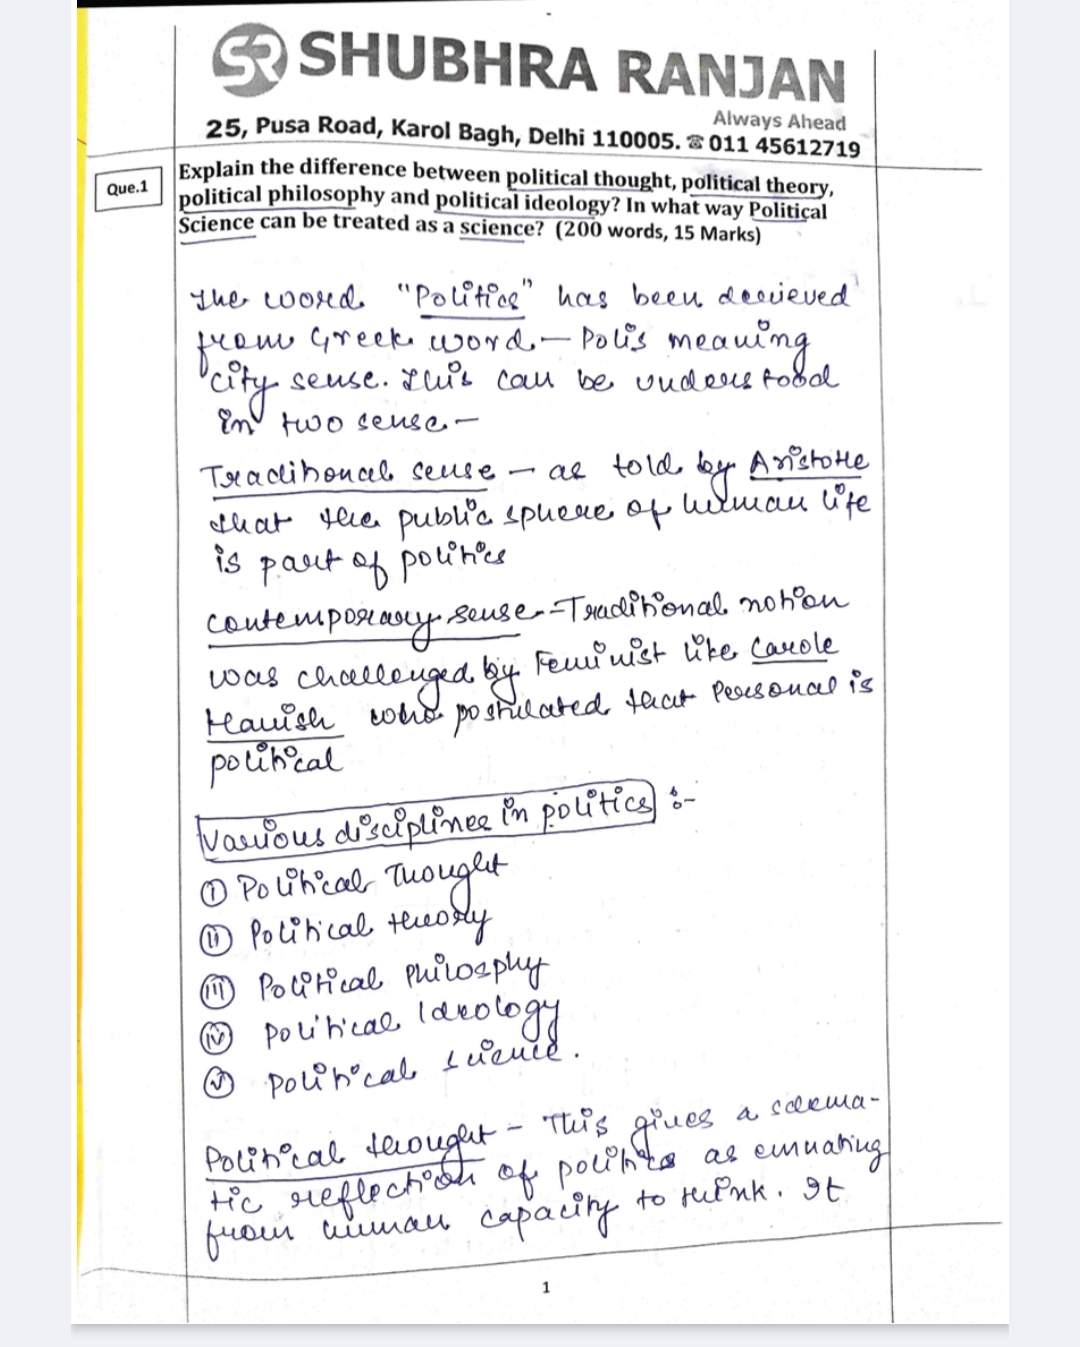 SR SHUBHRA RANJAN
Always Ahead
25, Pusa Road, Karol Bagh, Delhi 110005. ☎ 011 45612719
Que.1
Explain the difference between political thought, political theory,
political philosophy and political ideology? In what way Political
Science can be treated as a science? (200 words, 15 Marks)
The word "Politics" has been derieved
from Greek word – Polis meaning
city sense. This can be understood
in two sense –
Traditional sense – as told by Aristotle
that the public sphere of human life
is part of politics
Contemporary sense – Traditional notion
was challenged by Feminist like Carole
Hanish who postulated that Personal is
political
Various disciplines in politics :-
(i) Political Thought
(ii) Political theory
(iii) Political Philosphy
(iv) Political Ideology
(v) Political science.
Political thought – This gives a schema-
tic reflection of politics as emnating
from human capacity to think. It
1